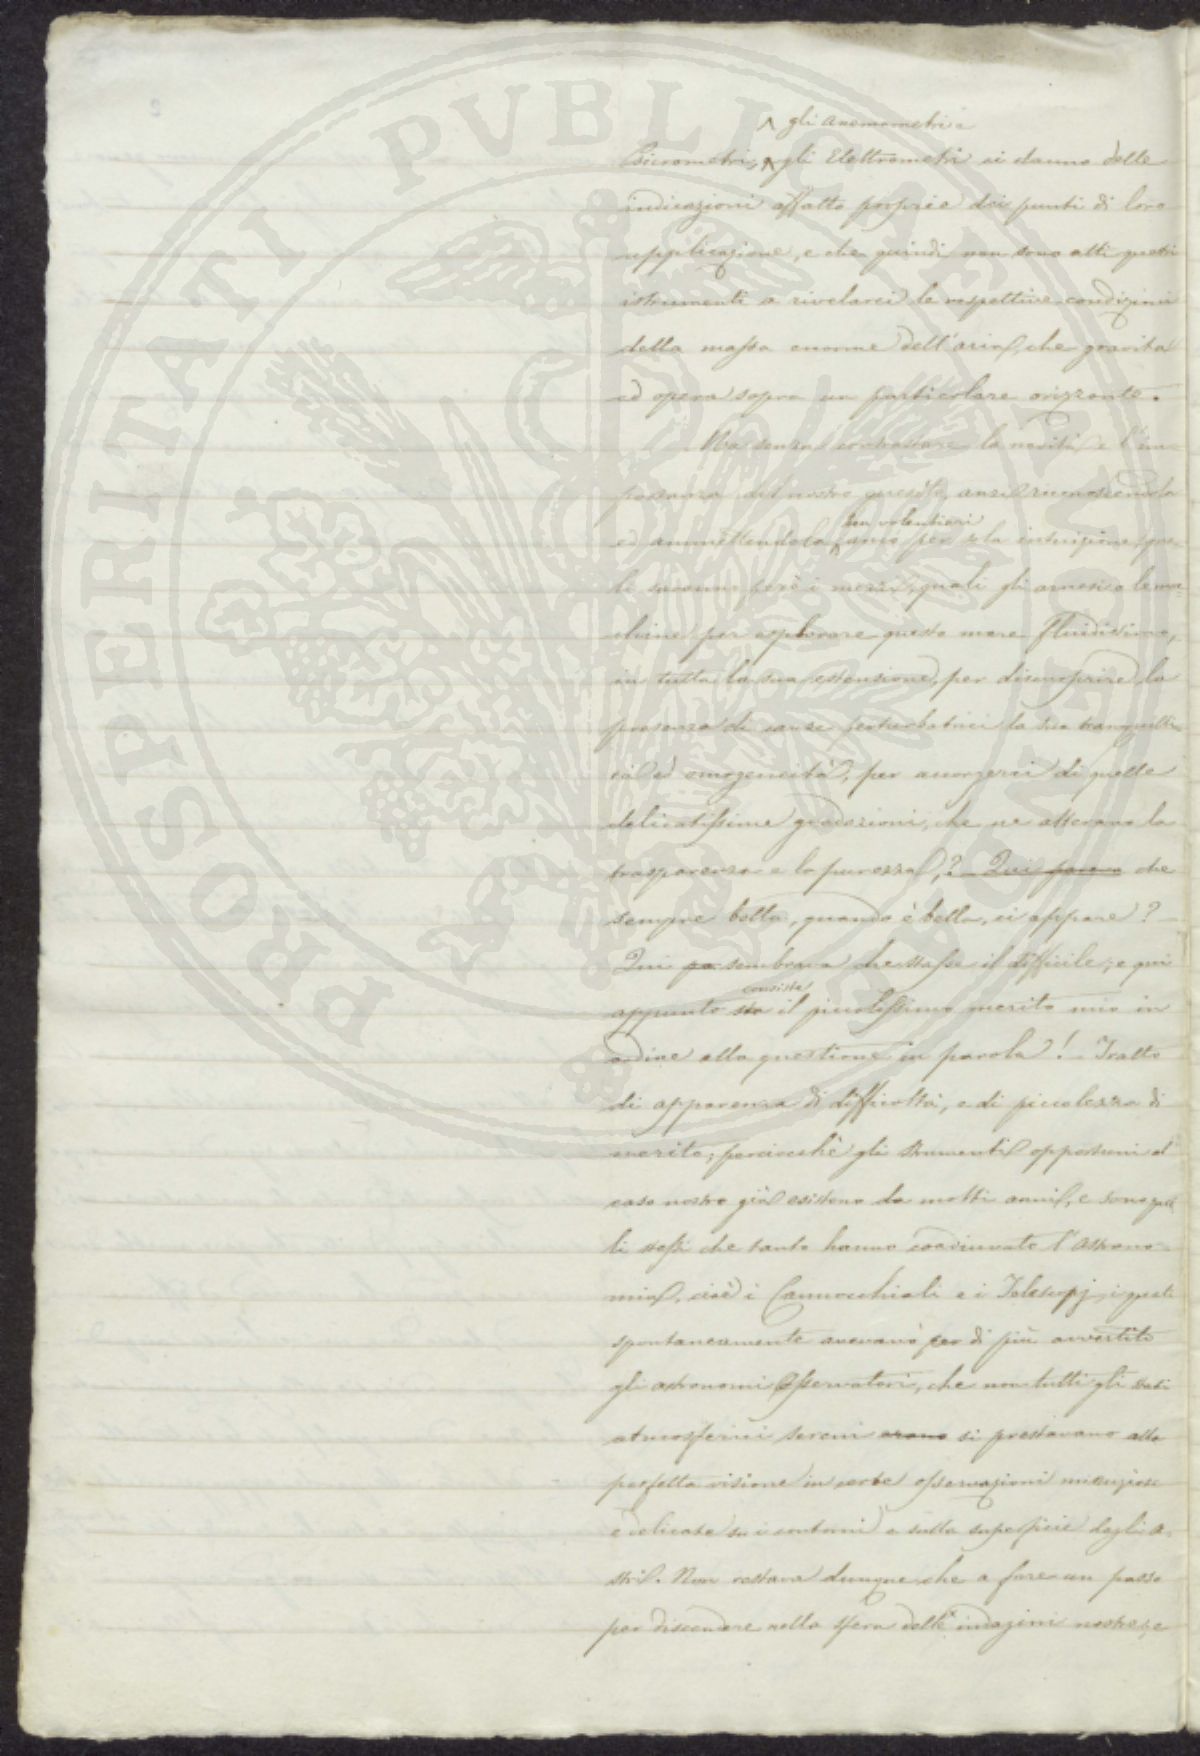 gli anemometri e
Psicrometri, gli Elettrometri ci danno delle
indicazioni affatto proprie dei punti di loro
applicazione, e che quindi non sono atti questi
istrumenti a rivelarci le respettive condizioni
della massa enorme dell'aria, che gravita
ed opera sopra un particolare orizzonte.
Ma senza contrastare la novità e l'im-
portanza del nostro quesito, anzi riconoscendola
ben volentieri
ed ammettendola, anco per sola intuizione, qua-
li saranno però i mezzi, quali gli arnesi o le mac-
chine per esplorare questo mare fluidissimo,
in tutta la sua estensione, per discuoprire la
presenza di cause perturbatrici la sua tranquilli-
tà ed omogeneità, per accorgerci di quelle
delicatissime gradazioni, che ne alterano la
trasparenza e la purezza, ? Qui pareva che
sempre bella, quando è bella, ci appare ?
Qui pa sembrava che stasse il difficile; e qui
consiste
appunto sta il piccolissimo merito mio in
ordine alla questione in parola ! Tratto
di apparenza di difficoltà, e di piccolezza di
merito; perciocchè gli strumenti opportuni al
caso nostro già esistono da molti anni, e sono quel-
li stessi che tanto hanno coadiuvato l'Astrono-
mia, cioè i Cannocchiali e i Telescopj, i quali
spontaneamente avevano per di più avvertito
gli astronomi Osservatori, che non tutti gli stati
atmosferici sereni erano si prestavano alla
perfetta visione in certe osservazioni minuziose
e delicate su i contorni e sulla superficie degli a-
stri. Non restava dunque che a fare un passo
per discendere nella sfera delle indagini nostre, e
PROSPERITATI PVBLICAE AVGENDAE